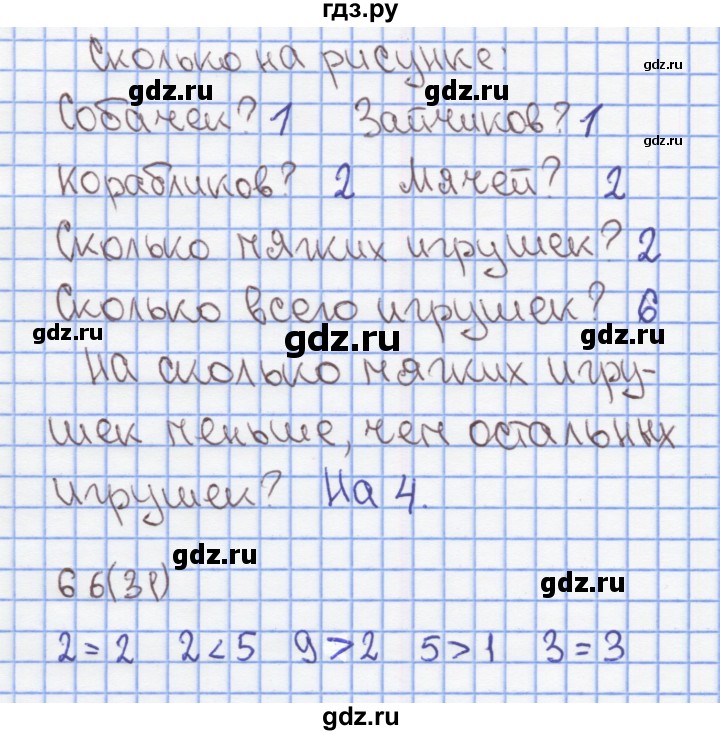 гдз.ру
Сколько на рисунке:
gdz.ru
gdz.ru gdz.ru
Собачек? 1 Зайчиков? 1
gdz.ru
Корабликов? 2 Мячей? 2
Сколько мягких игрушек? 2
Сколько всего игрушек? 6
gdz.ru gdz.ru gdz.ru
На сколько мягких игру-
шек меньше, чем остальных
игрушек? На 4.
gdz.ru
6 6(31)
gdz.ru
2=2 2<5 9>2 5>1 3=3
gdz.ru